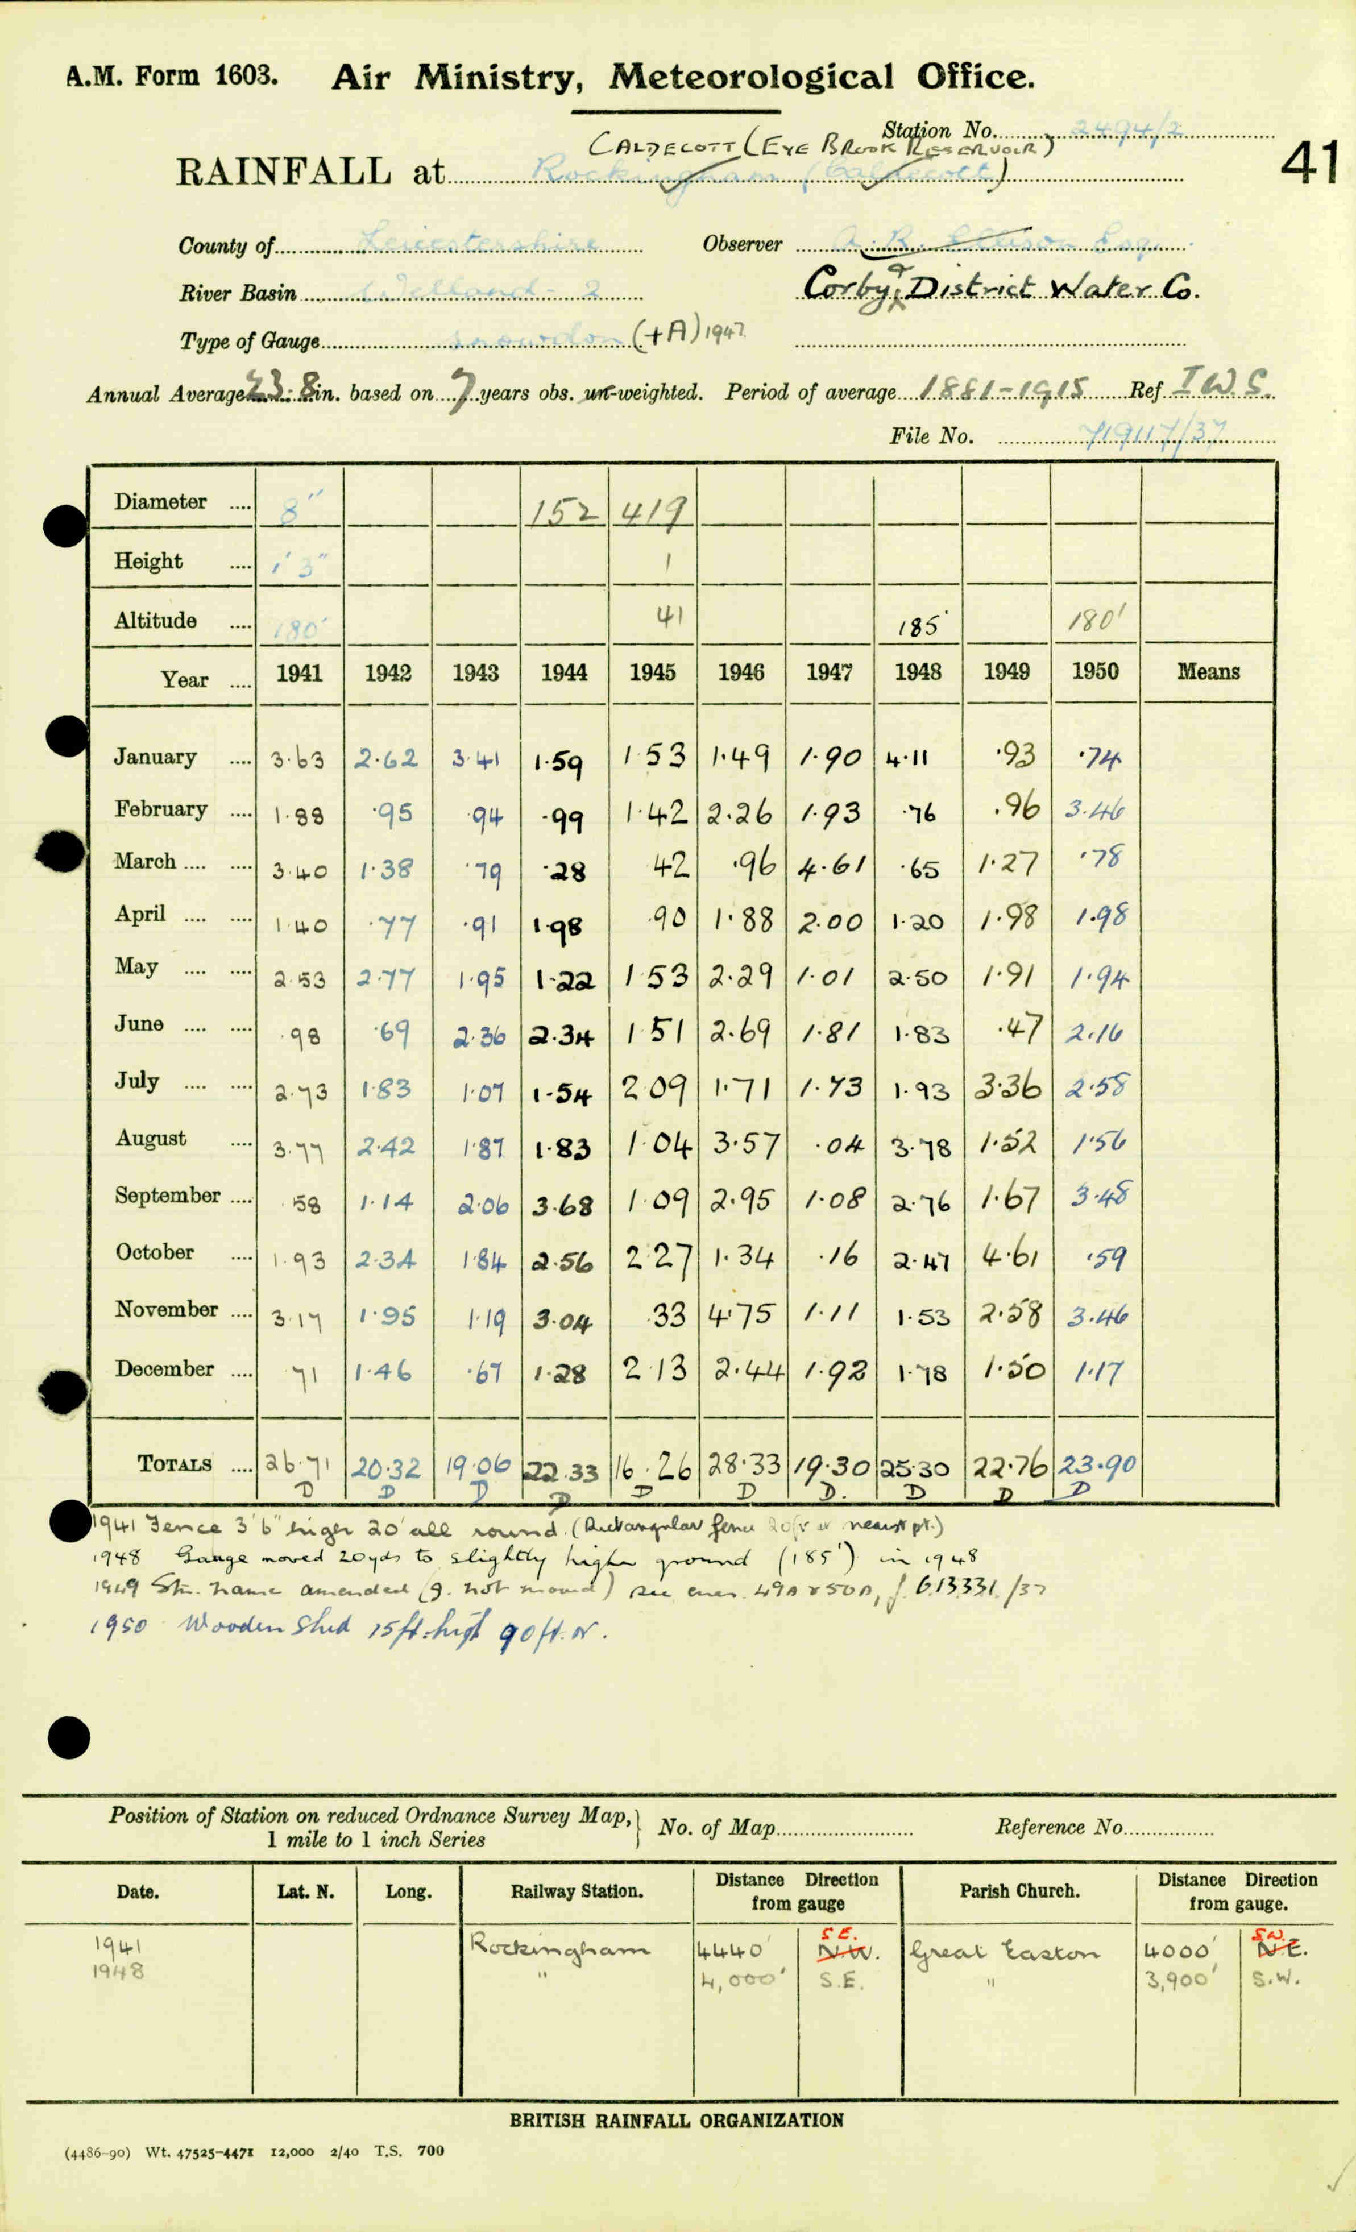 A.M. Form 1603. Air Ministry, Meteorological Office.
Station No. 2494/2
41
CALDECOTT (EYE BROOK RESERVOIR)
RAINFALL at Rockingham (Caldecott)
County of Leicestershire Observer A. R. Ellison Esq.
River Basin Welland - 2 Corby & District Water Co.
Type of Gauge Snowdon (+A) 1947
Annual Average 23.8 in. based on 7 years obs. un-weighted. Period of average 1881-1915 Ref I.W.S.
File No. 719117/37
Diameter .... 8" 152 419
Height .... 1' 3" 1
Altitude .... 180' 41 185' 180'
Year .... 1941 1942 1943 1944 1945 1946 1947 1948 1949 1950 Means
January .... 3.63 2.62 3.41 1.59 1.53 1.49 1.90 4.11 .93 .74
February .... 1.88 .95 .94 .99 1.42 2.26 1.93 .76 .96 3.46
March .... .... 3.40 1.38 .79 .28 42 .96 4.61 .65 1.27 .78
April .... .... 1.40 .77 .91 1.98 .90 1.88 2.00 1.20 1.98 1.98
May .... .... 2.53 2.77 1.95 1.22 1.53 2.29 1.01 2.50 1.91 1.94
June .... .... .98 .69 2.36 2.34 1.51 2.69 1.81 1.83 .47 2.16
July .... .... 2.73 1.83 1.07 1.54 2.09 1.71 1.73 1.93 3.36 2.58
August .... 3.77 2.42 1.87 1.83 1.04 3.57 .04 3.78 1.52 1.56
September .... .58 1.14 2.06 3.68 1.09 2.95 1.08 2.76 1.67 3.48
October .... 1.93 2.34 1.84 2.56 2.27 1.34 .16 2.47 4.61 .59
November .... 3.17 1.95 1.19 3.04 .33 4.75 1.11 1.53 2.58 3.46
December .... .71 1.46 .67 1.28 2.13 2.44 1.92 1.78 1.50 1.17
TOTALS .... 26.71 20.32 19.06 22.33 16.26 28.33 19.30 25.30 22.76 23.90
D D D D D D D. D D D
1941 Fence 3'6" high 20' all round. (Rectangular fence 20ft at nearest pt.)
1948 Gauge moved 20yds to slightly higher ground (185') in 1948
1949 Stn. name amended (g. not moved) see 49A & 50A, f. 613331/37
1950 Wooden Shed 15ft. high 90ft. N.
Position of Station on reduced Ordnance Survey Map, 1 mile to 1 inch Series } No. of Map Reference No.
Date. Lat. N. Long. Railway Station. Distance Direction from gauge Parish Church. Distance Direction from gauge.
S.E. S.W.
1941 Rockingham 4440' N.W. Great Easton 4000' N.E.
1948 " 4,000' S.E. " 3,900' S.W.
BRITISH RAINFALL ORGANIZATION
(4486-90) Wt. 47525-4471 12,000 2/40 T.S. 700